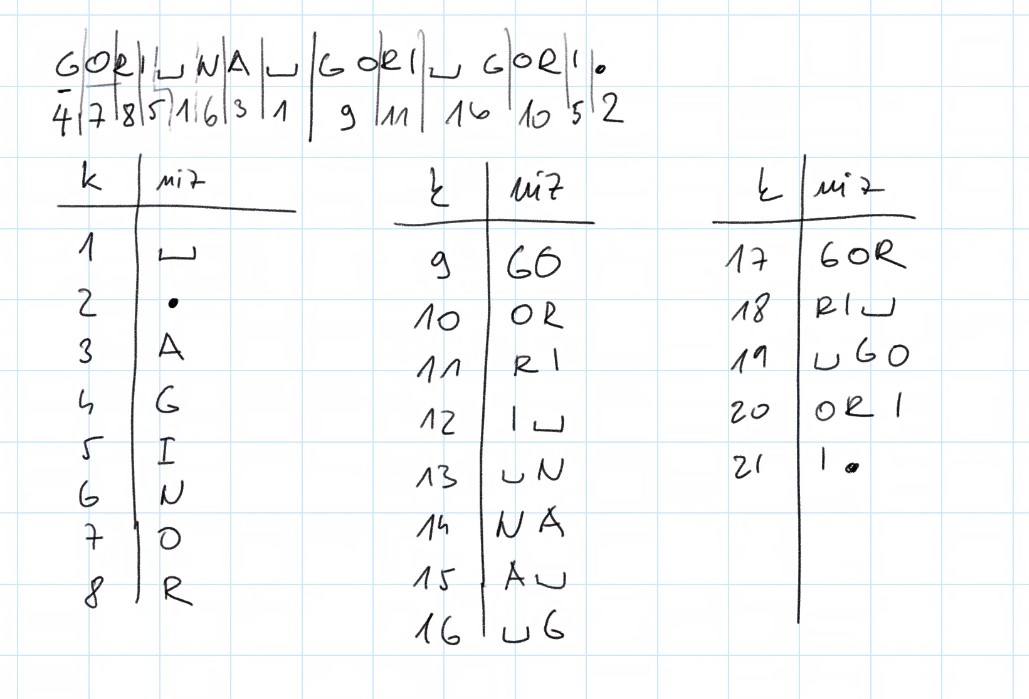 G|O|R|I|␣|N|A|␣|GO|RI|␣G|OR|I|.
4|7|8|5|1|6|3|1|9|11|16|10|5|2
k | niz
1 | ␣
2 | .
3 | A
4 | G
5 | I
6 | N
7 | O
8 | R
k | niz
9 | GO
10 | OR
11 | RI
12 | I␣
13 | ␣N
14 | NA
15 | A␣
16 | ␣G
k | niz
17 | GOR
18 | RI␣
19 | ␣GO
20 | ORI
21 | I.